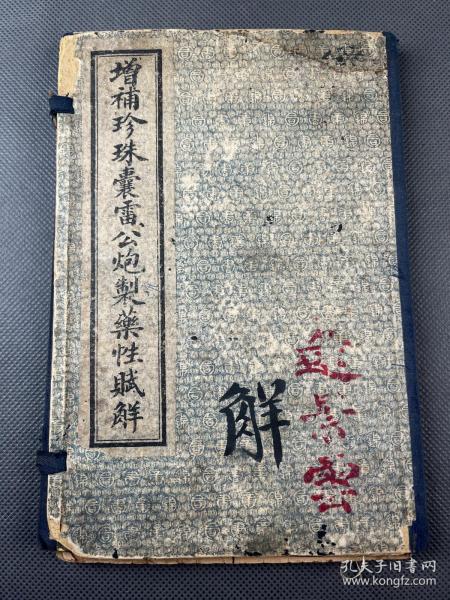 增補珍珠囊雷公炮製藥性賦解
解
雲
孔夫子旧书网
www.kongfz.com